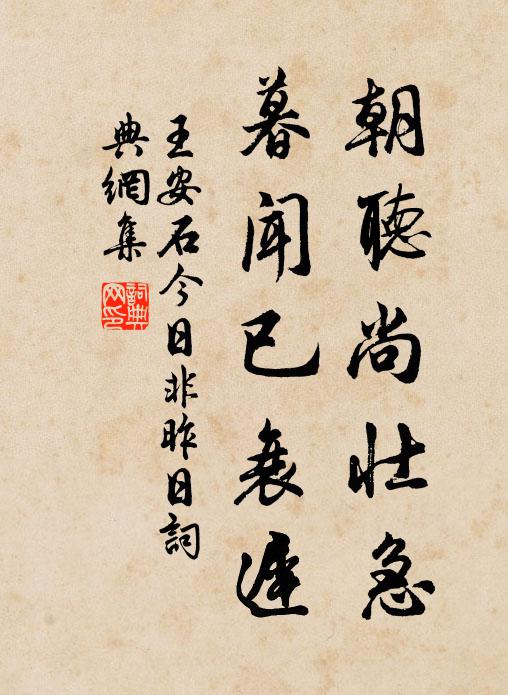 朝聽尚壯急
暮聞已衰遲
王安石今日非昨日詞
典網集
詞典網印